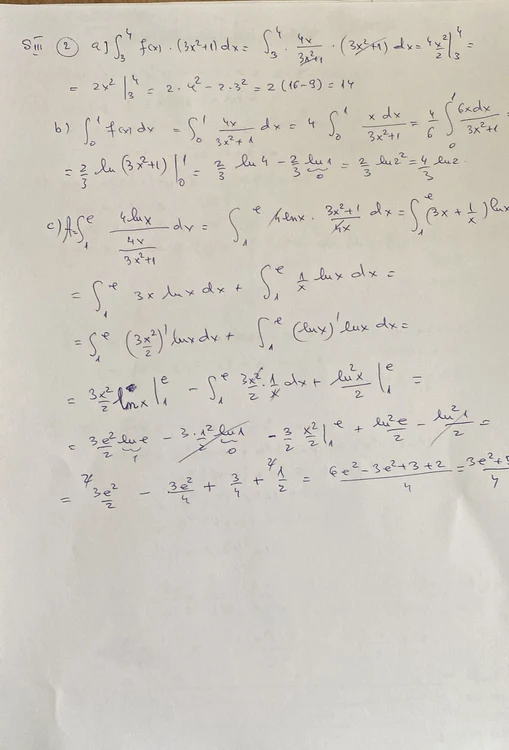 SIII (2) a) ∫₃⁴ f(x)·(3x²+1)dx = ∫₃⁴ · 4x/(3x²+1) · (3x²+1) dx = 4 x²/2 |₃⁴ =
= 2x² |₃⁴ = 2·4² - 2·3² = 2(16-9) = 14
b) ∫₀¹ f(x) dx = ∫₀¹ 4x/(3x²+1) dx = 4 ∫₀¹ x dx/(3x²+1) = 4/6 ∫₀¹ 6x dx/(3x²+1) =
= 2/3 ln(3x²+1) |₀¹ = 2/3 ln 4 - 2/3 ln 1 = 2/3 ln 2² = 4/3 ln 2.
0
c) A = ∫₁ᵉ 4lnx/(4x/(3x²+1)) dx = ∫₁ᵉ 4lnx · (3x²+1)/4x dx = ∫₁ᵉ (3x + 1/x) lnx
= ∫₁ᵉ 3x lnx dx + ∫₁ᵉ 1/x lnx dx =
= ∫₁ᵉ (3x²/2)' lnx dx + ∫₁ᵉ (lnx)' lnx dx =
= 3x²/2 lnx |₁ᵉ - ∫₁ᵉ 3x²/2 · 1/x dx + ln²x/2 |₁ᵉ =
= 3e²/2 ln e - 3·1²/2 ln 1 - 3/2 x²/2 |₁ᵉ + ln²e/2 - ln²1/2 =
1 0
= ²⁄3e²/2 - 3e²/4 + 3/4 + ²⁄1/2 = (6e²-3e²+3+2)/4 = (3e²+5)/4